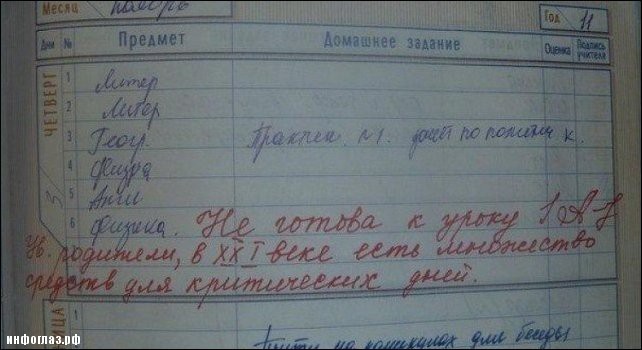 Месяц ноябрь Год 11
Дни № Предмет Домашнее задание Оценка Подпись учителя
ЧЕТВЕРГ 3
1 Литер
2 Литер
3 Геогр. Практич. №1.
4 Физра
5 Англ
6 Физика. Не готова к уроку
Ув. родители, в XXI веке есть множество
средств для критических дней.
1 на каникулах для беседы
инфоглаз.рф